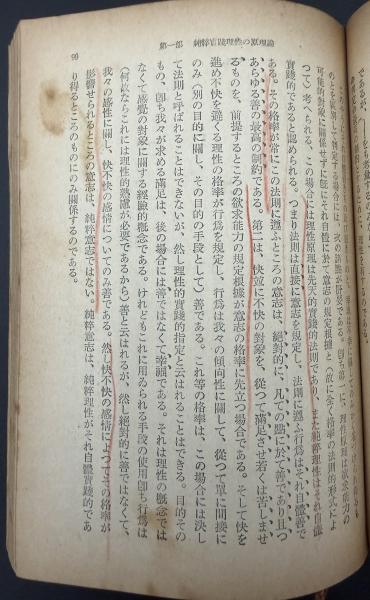 第一部 純粹實踐理性の原理論
90
可能的對象に關係せずに卽ちそれ自體に於て意志の規定根據と
つて）考へられる、この場合には理性原理は先天的實踐的法則であり、また純粹理性はそれ自體
實踐的であると認められる。つまり法則は直接に意志を規定し、法則に遵ふ行爲はそれ自體善で
ある。その格率が常にこの法則に遵ふところの意志は、絕對的に、凡ての點に於て善であり且つ
あらゆる善の最高の制約である。第二は、快竝に不快の對象を、從つて滿足させ若くは苦しませ
るものを、前提するところの欲求能力の規定根據が意志の格率に先立つ場合である。そして快を
進め不快を避くる理性の格率が行爲を規定し、行爲は我々の傾向性に關して、從つて單に間接に
のみ（別の目的に關し、その目的の手段として）善である。これ等の格率は、この場合には決し
て法則と呼ばれることはできないが、然し理性的實踐的指定と云はれることはできる。目的その
もの、卽ち我々が求める滿足は、後の場合には善ではなくて幸福である。それは理性の概念では
なくて感覺の對象に關する經驗的概念である。けれどもこれに用ゐられる手段の使用卽ち行爲は
（何故ならこれには理性的熟慮が必要であるから）善と云はれるが、然し絕對的に善ではなくて、
我々の感性に關し、快不快の感情についてのみ善である。然し快不快の感情によつてその格率が
影響せられるところの意志は、純粹意志ではない。純粹意志は、純粹理性がそれ自體實踐的であ
り得るところのものにのみ關係するのである。